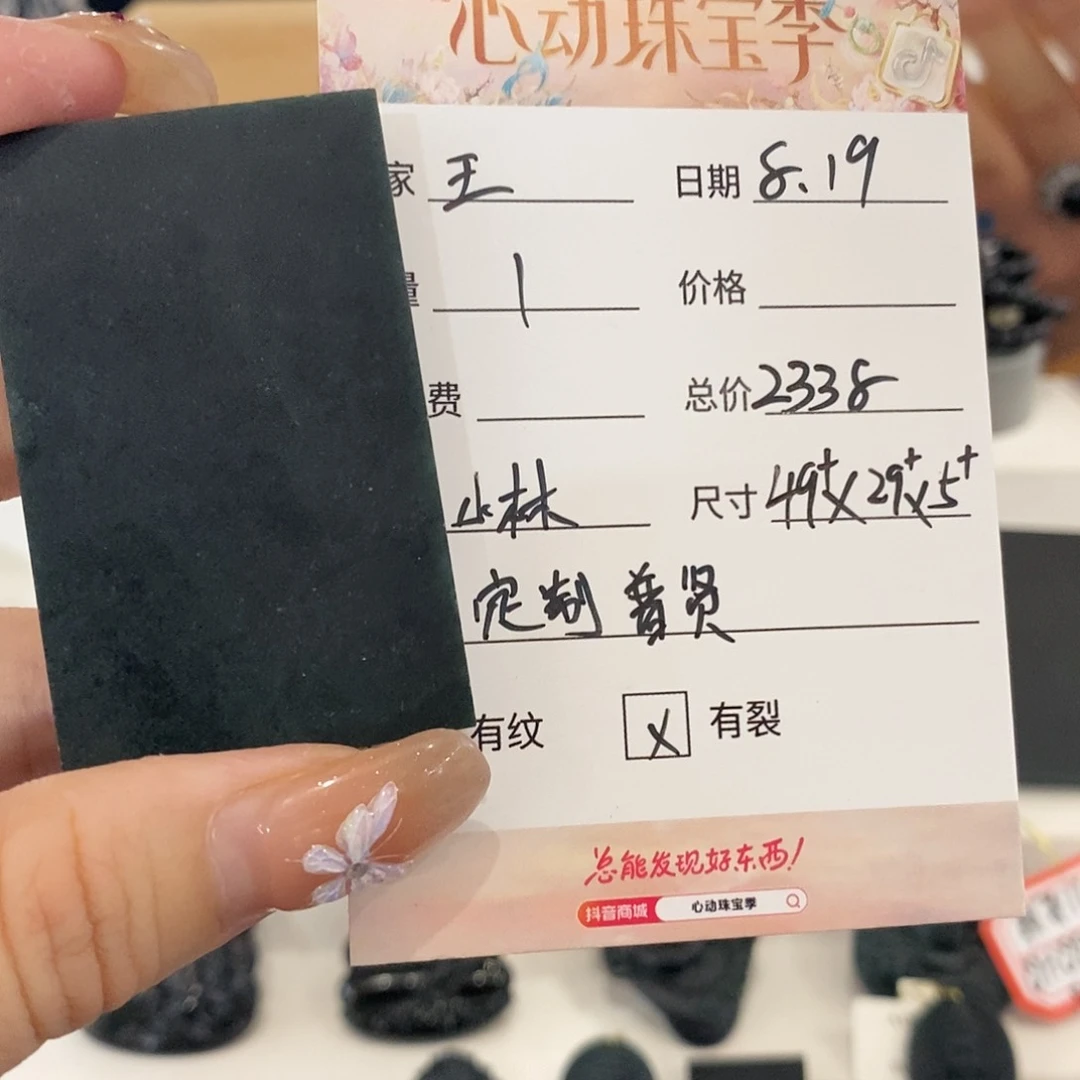 心动珠宝季
家 王 日期 8.19
量 1 价格
费 总价 2338
小林 尺寸 49⁺X29⁺X5⁺
定制 普贤
有纹 X 有裂
总能发现好东西!
抖音商城 心动珠宝季